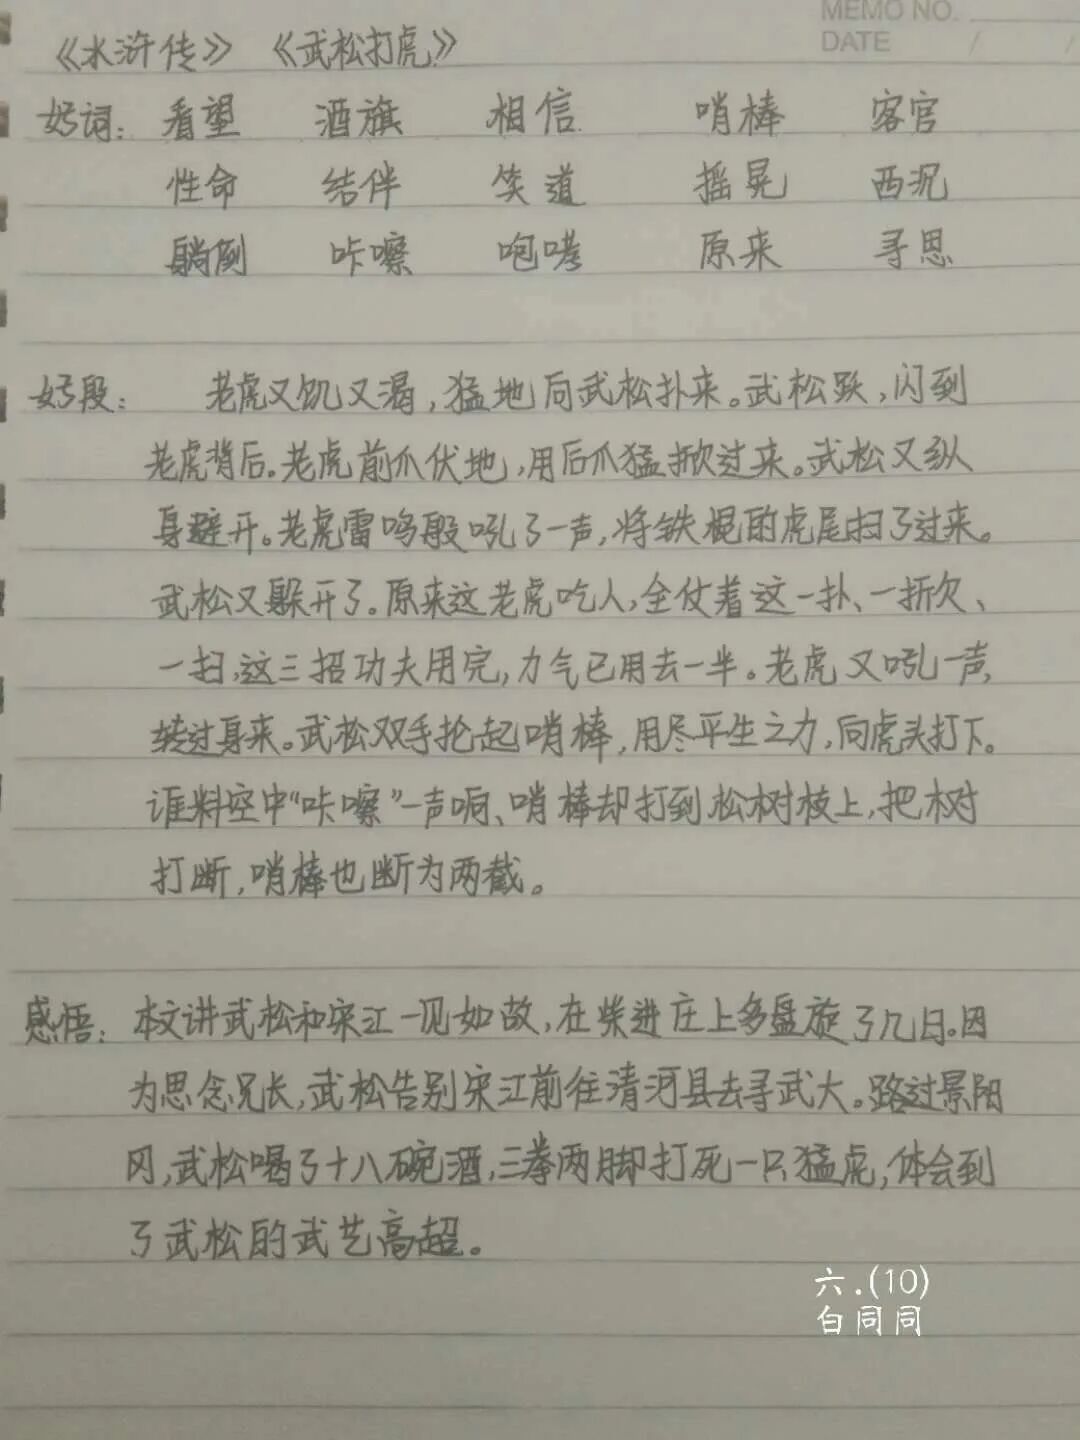 MEMO NO.
DATE / /
《水浒传》 《武松打虎》
好词: 看望 酒旗 相信 哨棒 客官
性命 结伴 笑道 摇晃 西沉
躺倒 咔嚓 咆哮 原来 寻思
好段: 老虎又饥又渴,猛地向武松扑来。武松跃,闪到
老虎背后。老虎前爪伏地,用后爪猛掀过来。武松又纵
身避开。老虎雷鸣般吼了一声,将铁棍的虎尾扫了过来。
武松又躲开了。原来这老虎吃人,全仗着这一扑、一掀、
一扫,这三招功夫用完,力气已用去一半。老虎又吼一声,
转过身来。武松双手抡起哨棒,用尽平生之力,向虎头打下。
谁料空中“咔嚓”一声响、哨棒却打到松树枝上,把树
打断,哨棒也断为两截。
感悟: 本文讲武松和宋江一见如故,在柴进庄上多盘旋了几日。因
为思念兄长,武松告别宋江前往清河县去寻武大。路过景阳
冈,武松喝了十八碗酒,三拳两脚打死一只猛虎,体会到
了武松的武艺高超。
六.(10)
白同同